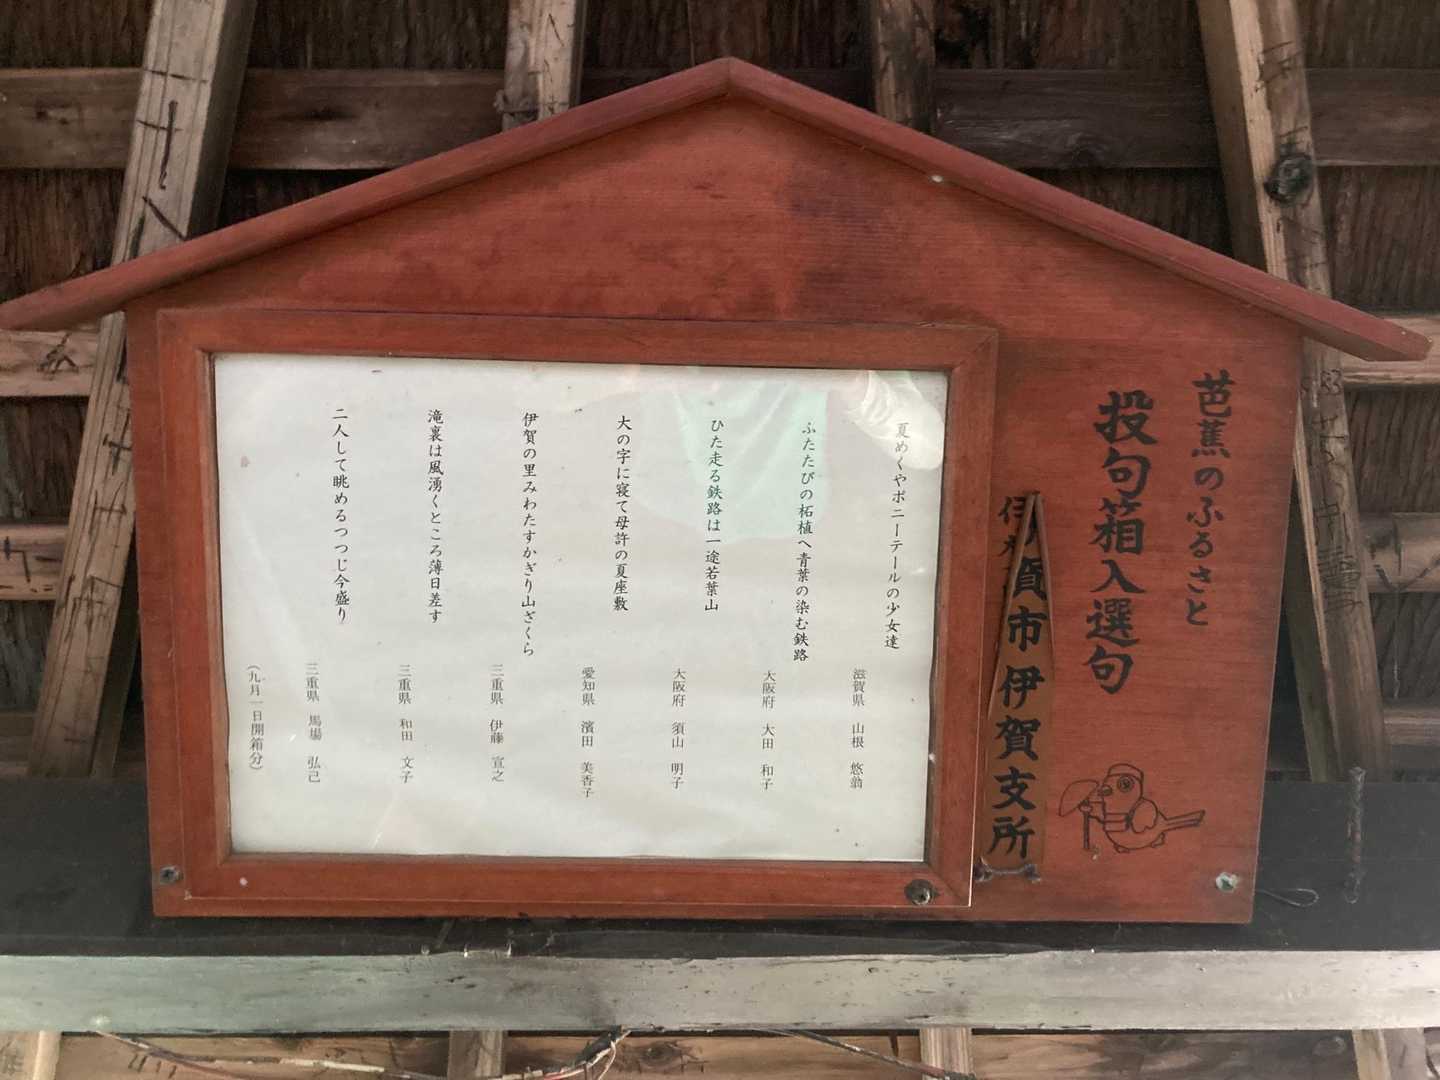 芭蕉のふるさと
投句箱入選句
伊賀市伊賀支所
夏めくやポニーテールの少女達
滋賀県 山根 悠翁
ふたたびの柘植へ青葉の染む鉄路
大阪府 大田 和子
ひた走る鉄路は一途若葉山
大阪府 須山 明子
大の字に寝て母許の夏座敷
愛知県 濱田 美香子
伊賀の里みわたすかぎり山ざくら
三重県 伊藤 宣之
滝裏は風湧くところ薄日差す
三重県 和田 文子
二人して眺めるつつじ今盛り
三重県 馬場 弘己
(九月一日開箱分)